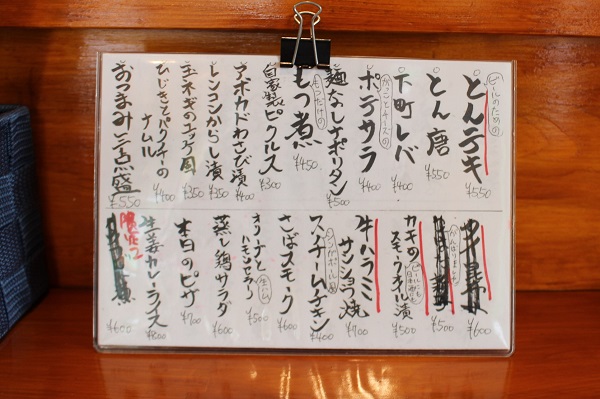 ビールのための
とんテキ ¥550
とん唐 ¥550
下町レバ ¥400
がっことチーズの
ポテサラ ¥400
麺なしナポリタン ¥500
もつだけの
もつ煮 ¥450
自家製ピクルス ¥300
アボカドわさび漬 ¥400
レンコンからし漬 ¥350
玉ネギのエッグ同 ¥350
ひじきとパクチーの
ナムル ¥400
おつまみ三点盛 ¥550
¥600
¥500
カキの
スモークオイル漬 ¥500
牛ハラミ
サンショウ焼 ¥700
シンガポール風
スチームチキン ¥400
さばスモーク ¥600
オリーブと
生ハム
ハモンセラーノ ¥500
蒸し鶏サラダ ¥600
本日のピザ ¥700
生姜カレーライス ¥800
限定2
¥600